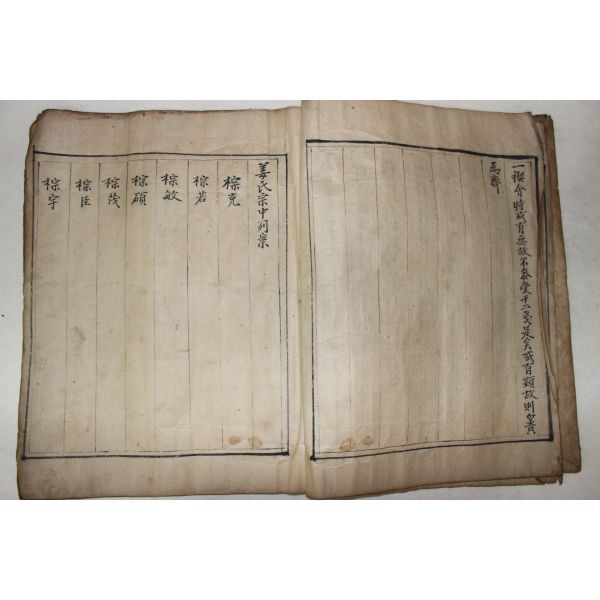 一禊會時或有無故不參受罰二戔是矣或有顯故則勿責
爲齊
姜氏宗中列案
棕克
棕若
棕敏
棕碩
棕茂
棕臣
棕宇